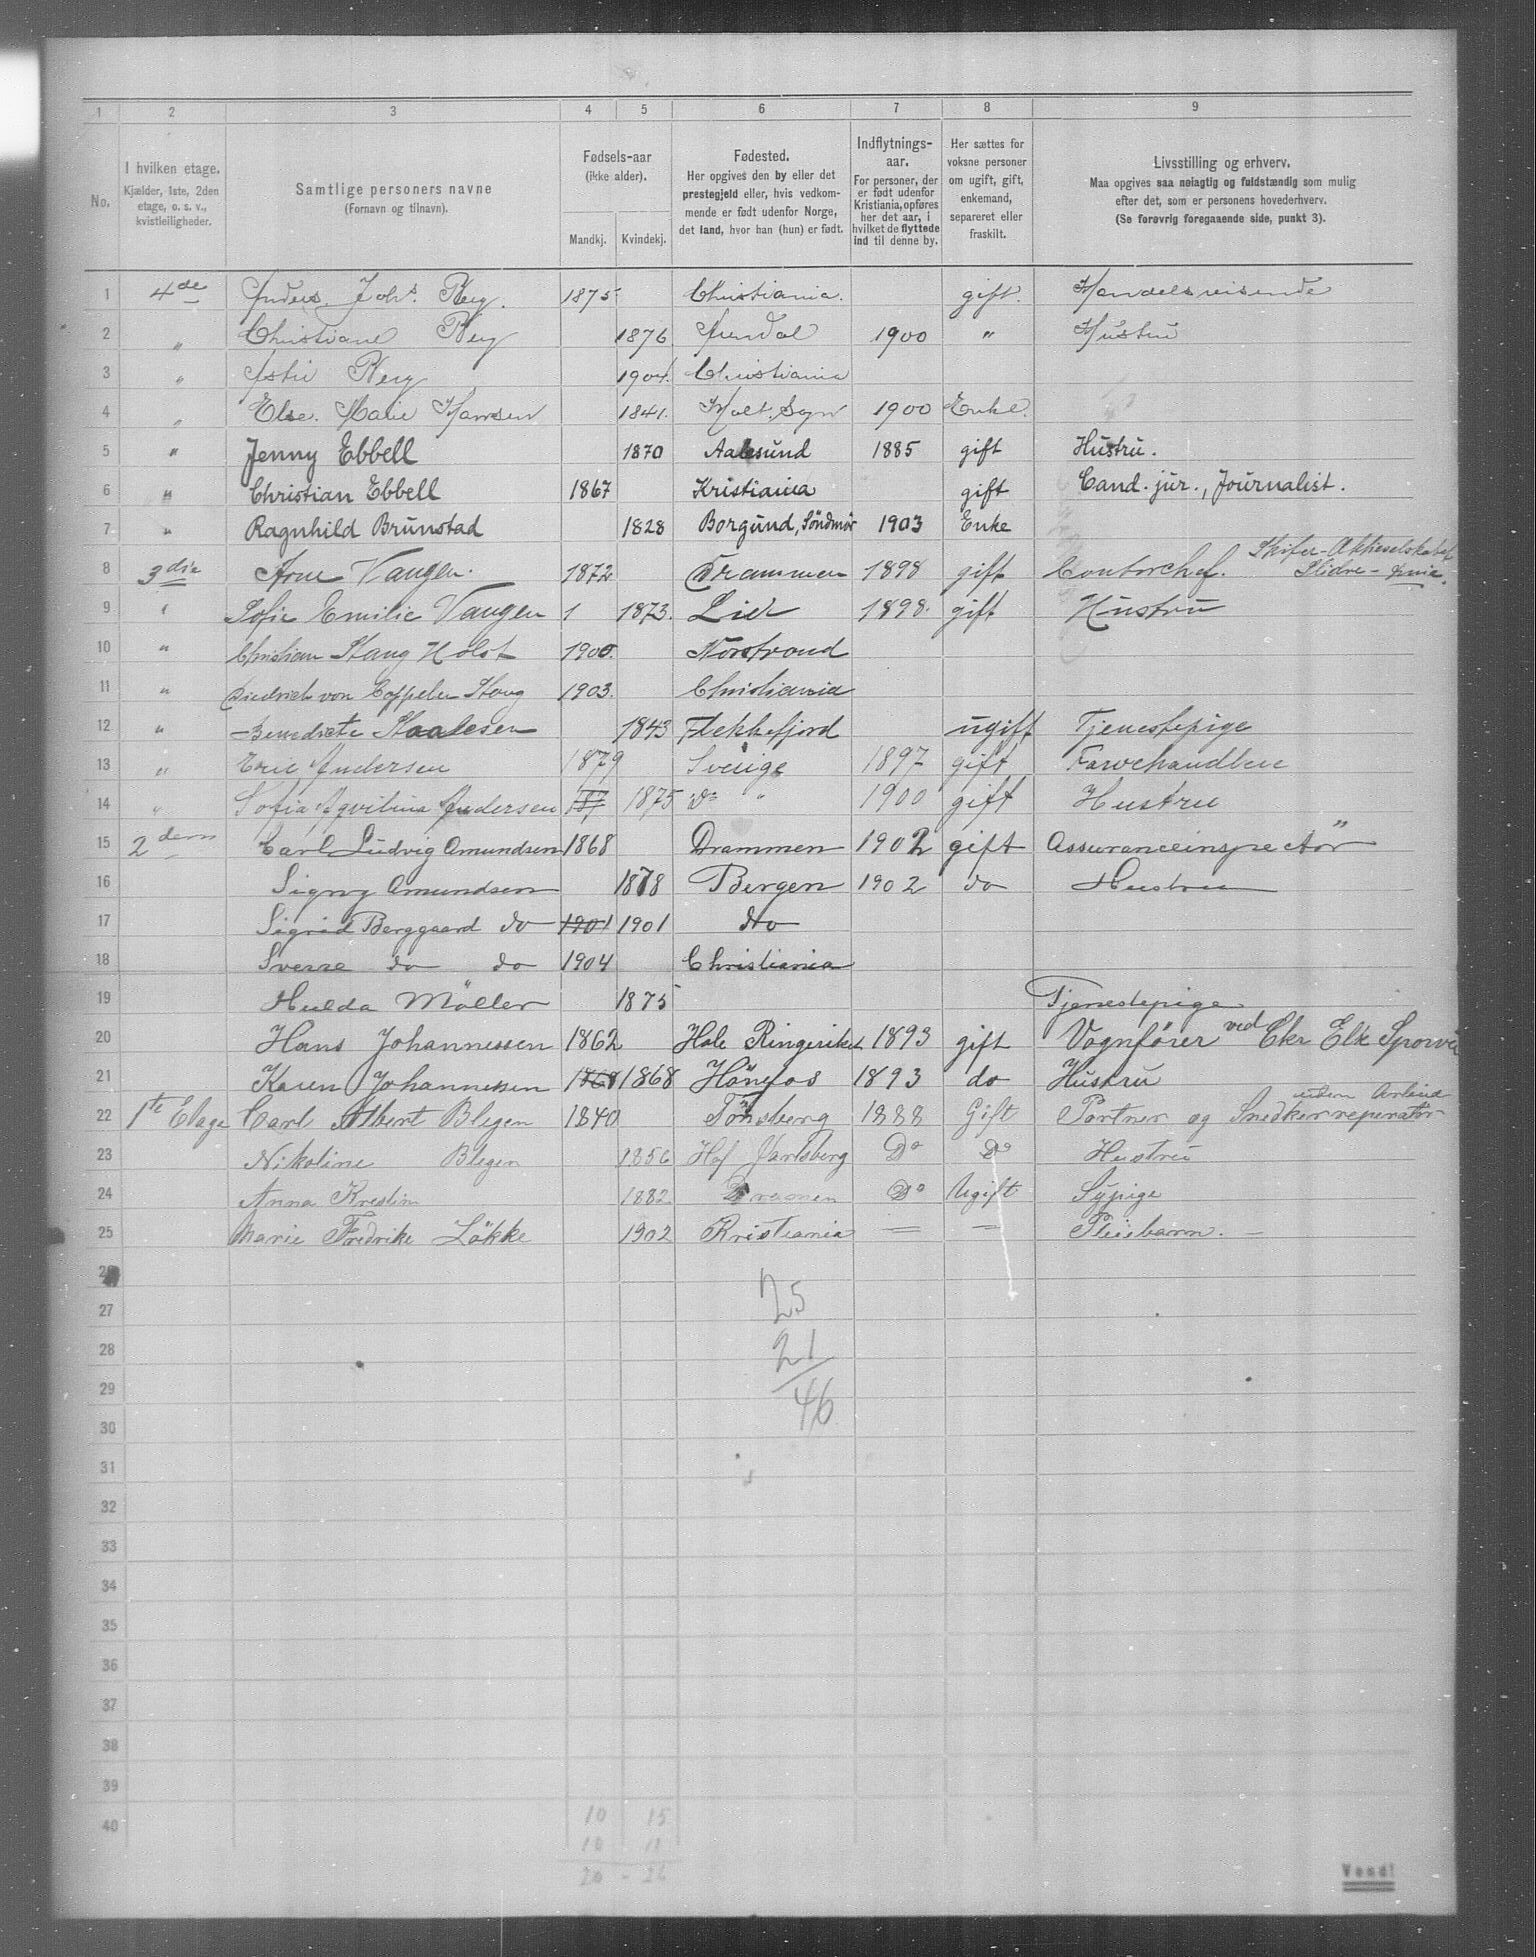 1 2 3 4 5 6 7 8 9
No.
I hvilken etage.
Kjælder, 1ste, 2den
etage, o. s. v.,
kvistleiligheder.
Samtlige personers navne
(Fornavn og tilnavn).
Fødsels-aar
(ikke alder).
Mandkj. Kvindekj.
Fødested.
Her opgives den by eller det
prestegjeld eller, hvis vedkom-
mende er født udenfor Norge,
det land, hvor han (hun) er født.
Indflytnings-
aar.
For personer, der
er født udenfor
Kristiania, opføres
her det aar, i
hvilket de flyttede
ind til denne by.
Her sættes for
voksne personer
om ugift, gift,
enkemand,
separeret eller
fraskilt.
Livsstilling og erhverv.
Maa opgives saa nøiagtig og fuldstændig som mulig
efter det, som er personens hovederhverv.
(Se forøvrig foregaaende side, punkt 3).
1 4de Anders Johs. Berg. 1875 Christiania. gift. Handelsreisende
2 " Christiane Berg 1876 Arendal 1900 " Hustru
3 " Berg 1904. Christiania
4 " Else. Marie Hansen 1841. Holt. Sogn 1900 Enke.
5 " Jenny Ebbell 1870 Aalesund 1885 gift Hustru.
6 " Christian Ebbell 1867 Kristiania gift Cand. jur., Journalist.
7 " Ragnhild Brunstad 1828 Borgund, Söndmör 1903 Enke
8 3die Arne Vangen. 1872 Drammen 1898 gift Contorchef. Skifer-Aktieselskabet
Slidre-
9 " Sofie Emilie Vangen 1 1873. Lier 1898. gift Hustru
10 " Christian Stang Holst 1900. Norstrand
11 " Diedrich von Coppelen Stang 1903. Christiania
12 " Benedicte Staalesen 1843 Flekkefjord ugift Tjenestepige
13 " Eric Andersen 1879 Sverige 1897 gift Farvehandlere
14 " Sofia Aqvilina Andersen 187 1875 Do " 1900 gift Hustru
15 2den Carl Ludvig Amundsen 1868 Drammen 1902 gift Assuranceinspectör
16 Signy Amundsen 1878 Bergen 1902 do Hustru
17 Sigrid Berggaard do 1901 1901 do
18 Sverre do do 1904 Christiania
19 Hulda Möller 1875 Tjenestepige
20 Hans Johannessen 1862 Hole Ringeriket 1893 gift Vognfører ved Chr Elk Sporvei
21 Karen Johannessen 1868 1868 Hönefos 1893 do Hustru
22 1te Etage Carl Albert Blegen 1840 Tönsberg 1888 Gift Portner og Snedkerreperatör
uden Arbeid
23 Nikoline Blegen 1856 Hof Jarlsberg Do Do Hustru
24 Anna Kristin 1882 Dramen Do Ugift Sypige
25 Marie Fredrike Løkke 1902 Kristiania — — Pleiebarn. —
26
27
28
29
30
31
32
33
34
35
36
37
38
39
40
25
21
46
10 15
10 11
20 - 26
Vend!